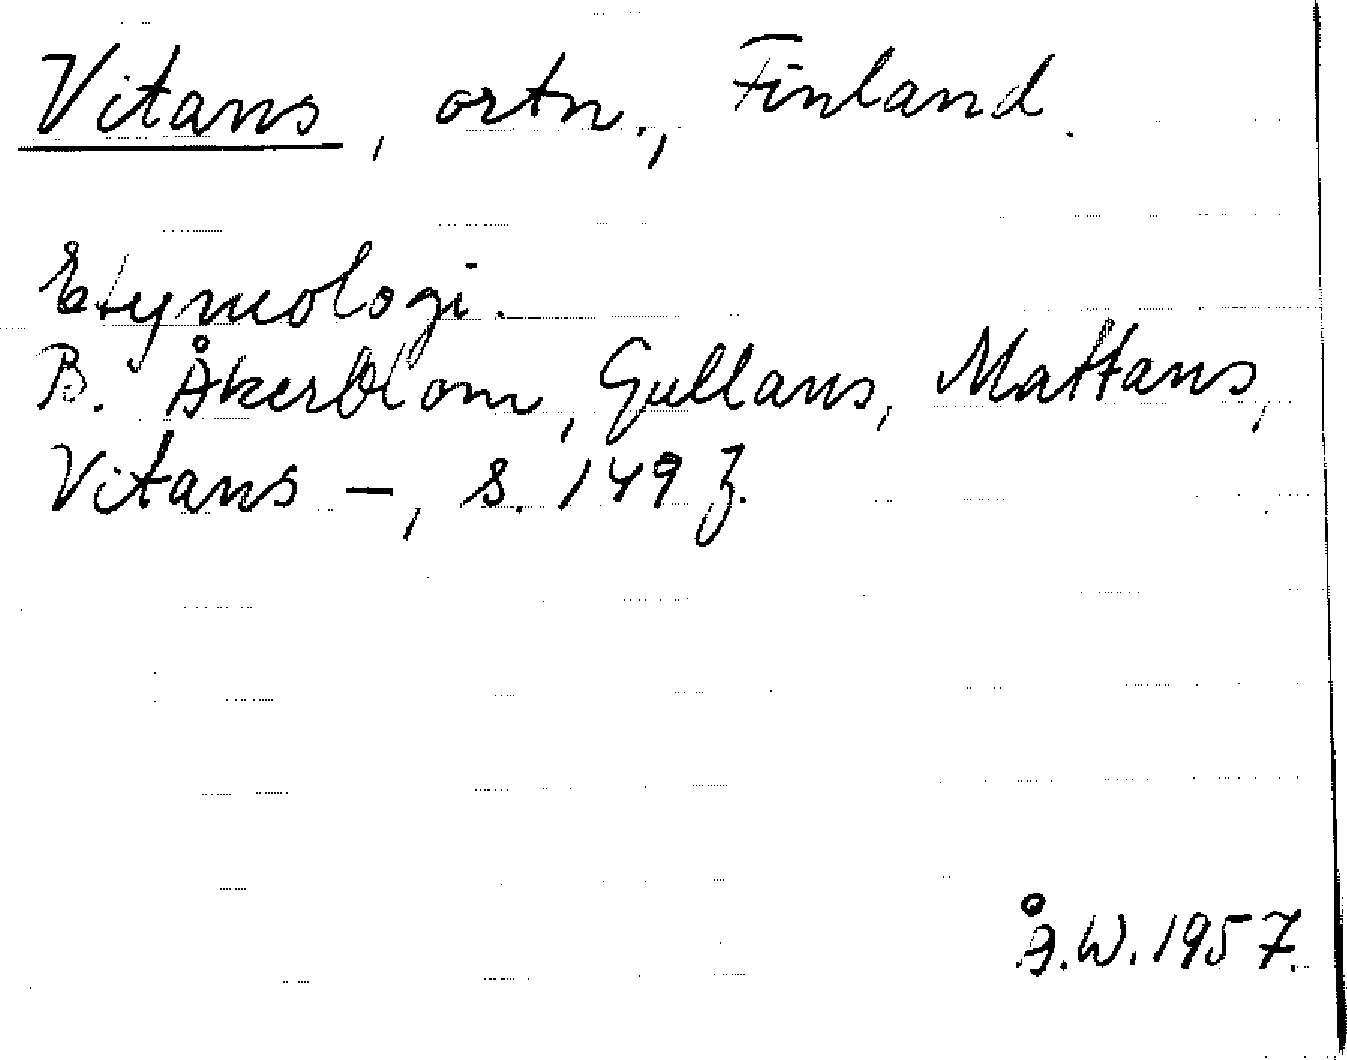 Vitans, ortn., Finland.
Etymologi.
B. Åkerblom, Gullans, Mattans,
Vitans –, s. 149 f.
Å.W. 1957.